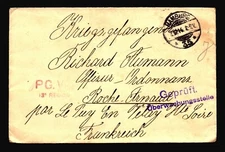 Kriegsgefangenen
Richard Humann
Offizier-Ordonnanz
Roche-Arnaud
par Le Puy En Velay Hte Loire
Frankreich
HAMBURG
P.G.
Geprüft.
Überwachungsstelle